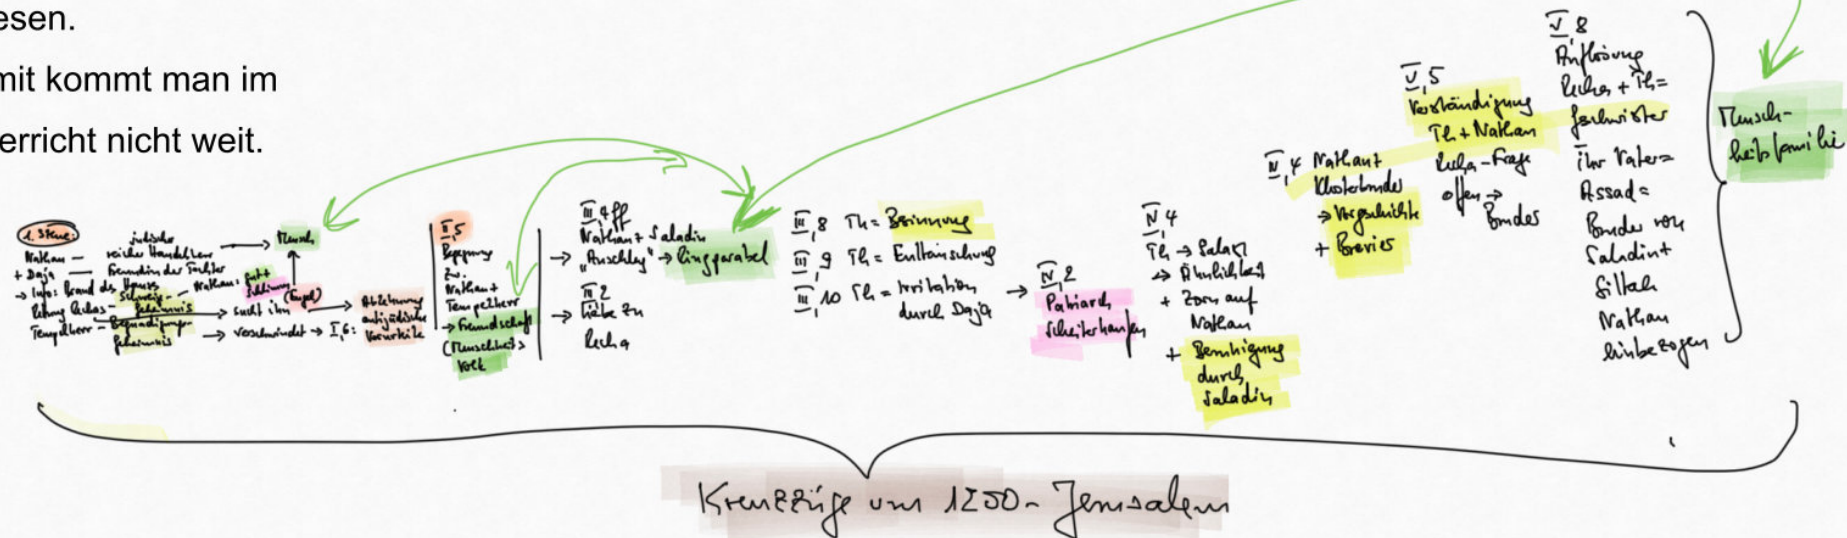 esen.
mit kommt man im
erricht nicht weit.
1. Szene:
Nathan —
jüdischer
reicher Handelsherr
Mensch
+ Daja — Freundin der Tochter
→ Info: Brand des Hauses
Nathan: Gut +
schlimm
(Engel)
Rettung Rechas —
Schweig-
geheimnis
sucht ihn
Tempelherr —
Begnadigungs-
geheimnis
→ verschwindet → I,6:
Ablehnung
antijüdische
Vorurteile
II,5
Begegnung
zw.
Nathan +
Tempelherr
→ Freundschaft
(Menschheit >
Volk
III,4ff
Nathan + Saladin
→ "Anschlag" → Ringparabel
III,2
→ Liebe zu
Recha
III,8 Th = Besinnung
III,9 Th = Enttäuschung
III,10 Th = Irritation
durch Daja
→ IV,2
Patriarch
Scheiterhaufen
IV,4
Th → Salad
→ Ähnlichkeit
+ Zorn auf
Nathan
+ Beruhigung
durch
Saladin
IV,4 Nathan +
Klosterbruder
→ Vorgeschichte
+ Brevier
V,5
Verständigung
Th + Nathan
Recha-Frage
offen →
Bruder
V,8
Auflösung
Recha + Th =
Geschwister
ihr Vater =
Assad =
Bruder von
Saladin +
Sittah
Nathan
einbezogen
Mensch-
heitsfamilie
Kreuzzüge um 1200 - Jerusalem